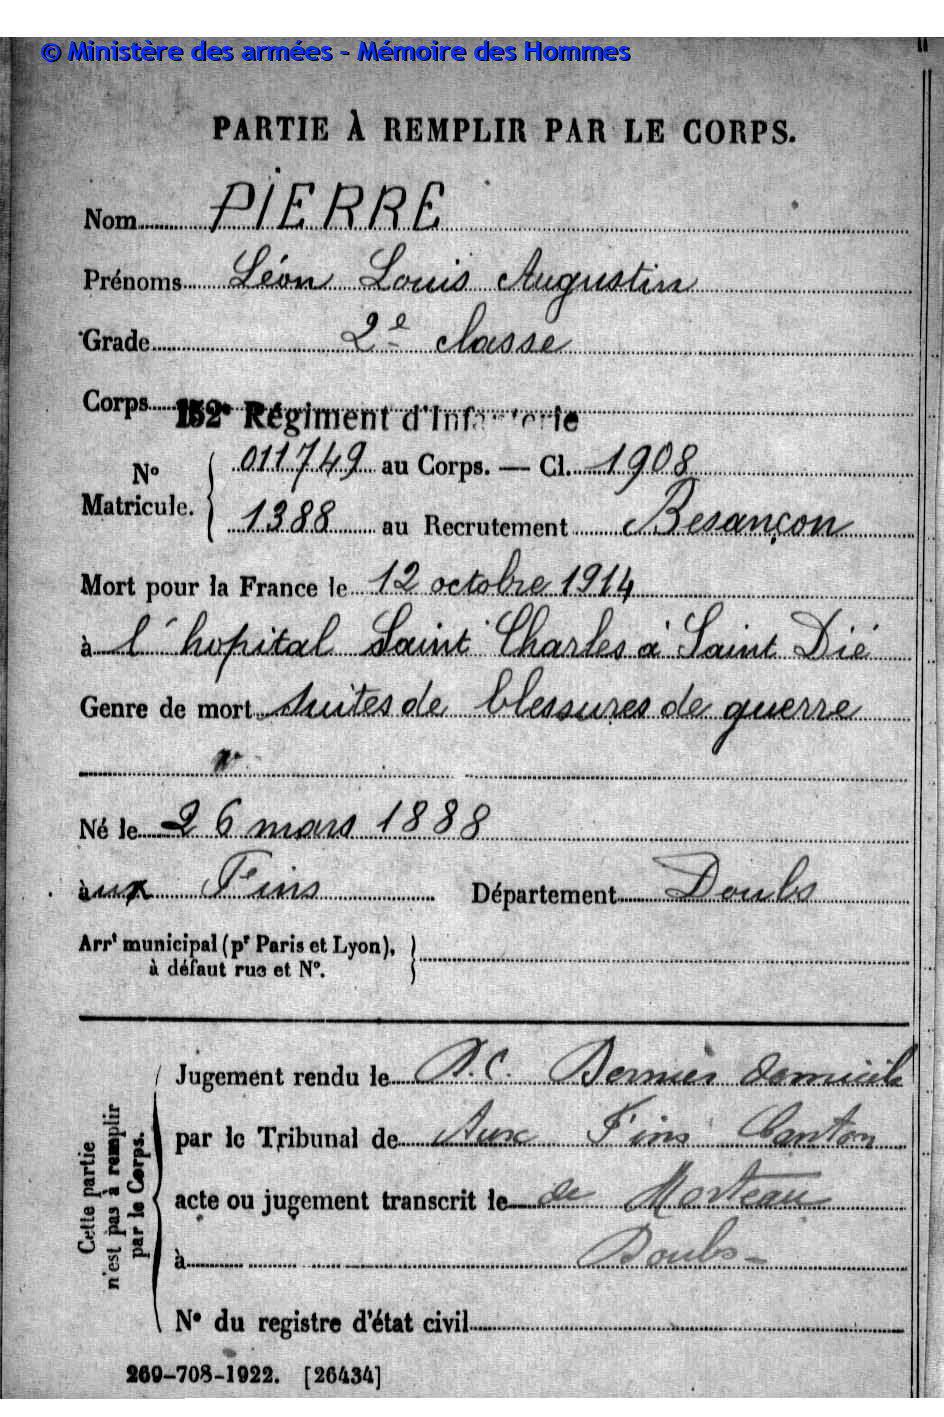 © Ministère des armées - Mémoire des Hommes
PARTIE À REMPLIR PAR LE CORPS.
Nom PIERRE
Prénoms Léon Louis Augustin
Grade 2e classe
Corps 152e Régiment d'Infanterie
No Matricule. { 011749 au Corps. — Cl. 1908
1388 au Recrutement Besançon
Mort pour la France le 12 octobre 1914
à l'hopital Saint Charles à Saint Dié
Genre de mort suites de blessures de guerre
Né le 26 mars 1888
aux Fins Département Doubs
Arrt municipal (pr Paris et Lyon), }
à défaut rue et No.
Cette partie n'est pas à remplir par le Corps.
Jugement rendu le D.C. Dernier domicile
par le Tribunal de Aux Fins Canton
acte ou jugement transcrit le de Morteau
à Doubs-
No du registre d'état civil
269-708-1922. [26434]